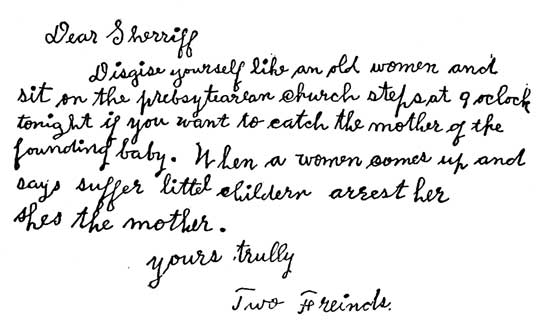 Dear Sherriff
Disgise yourself like an old women and
sit on the prebsytearean church steps at 9 oclock
tonight if you want to catch the mother of the
founding baby. When a women comes up and
says suffer littel childern arrest her
shes the mother.
yours trully
Two Freinds.